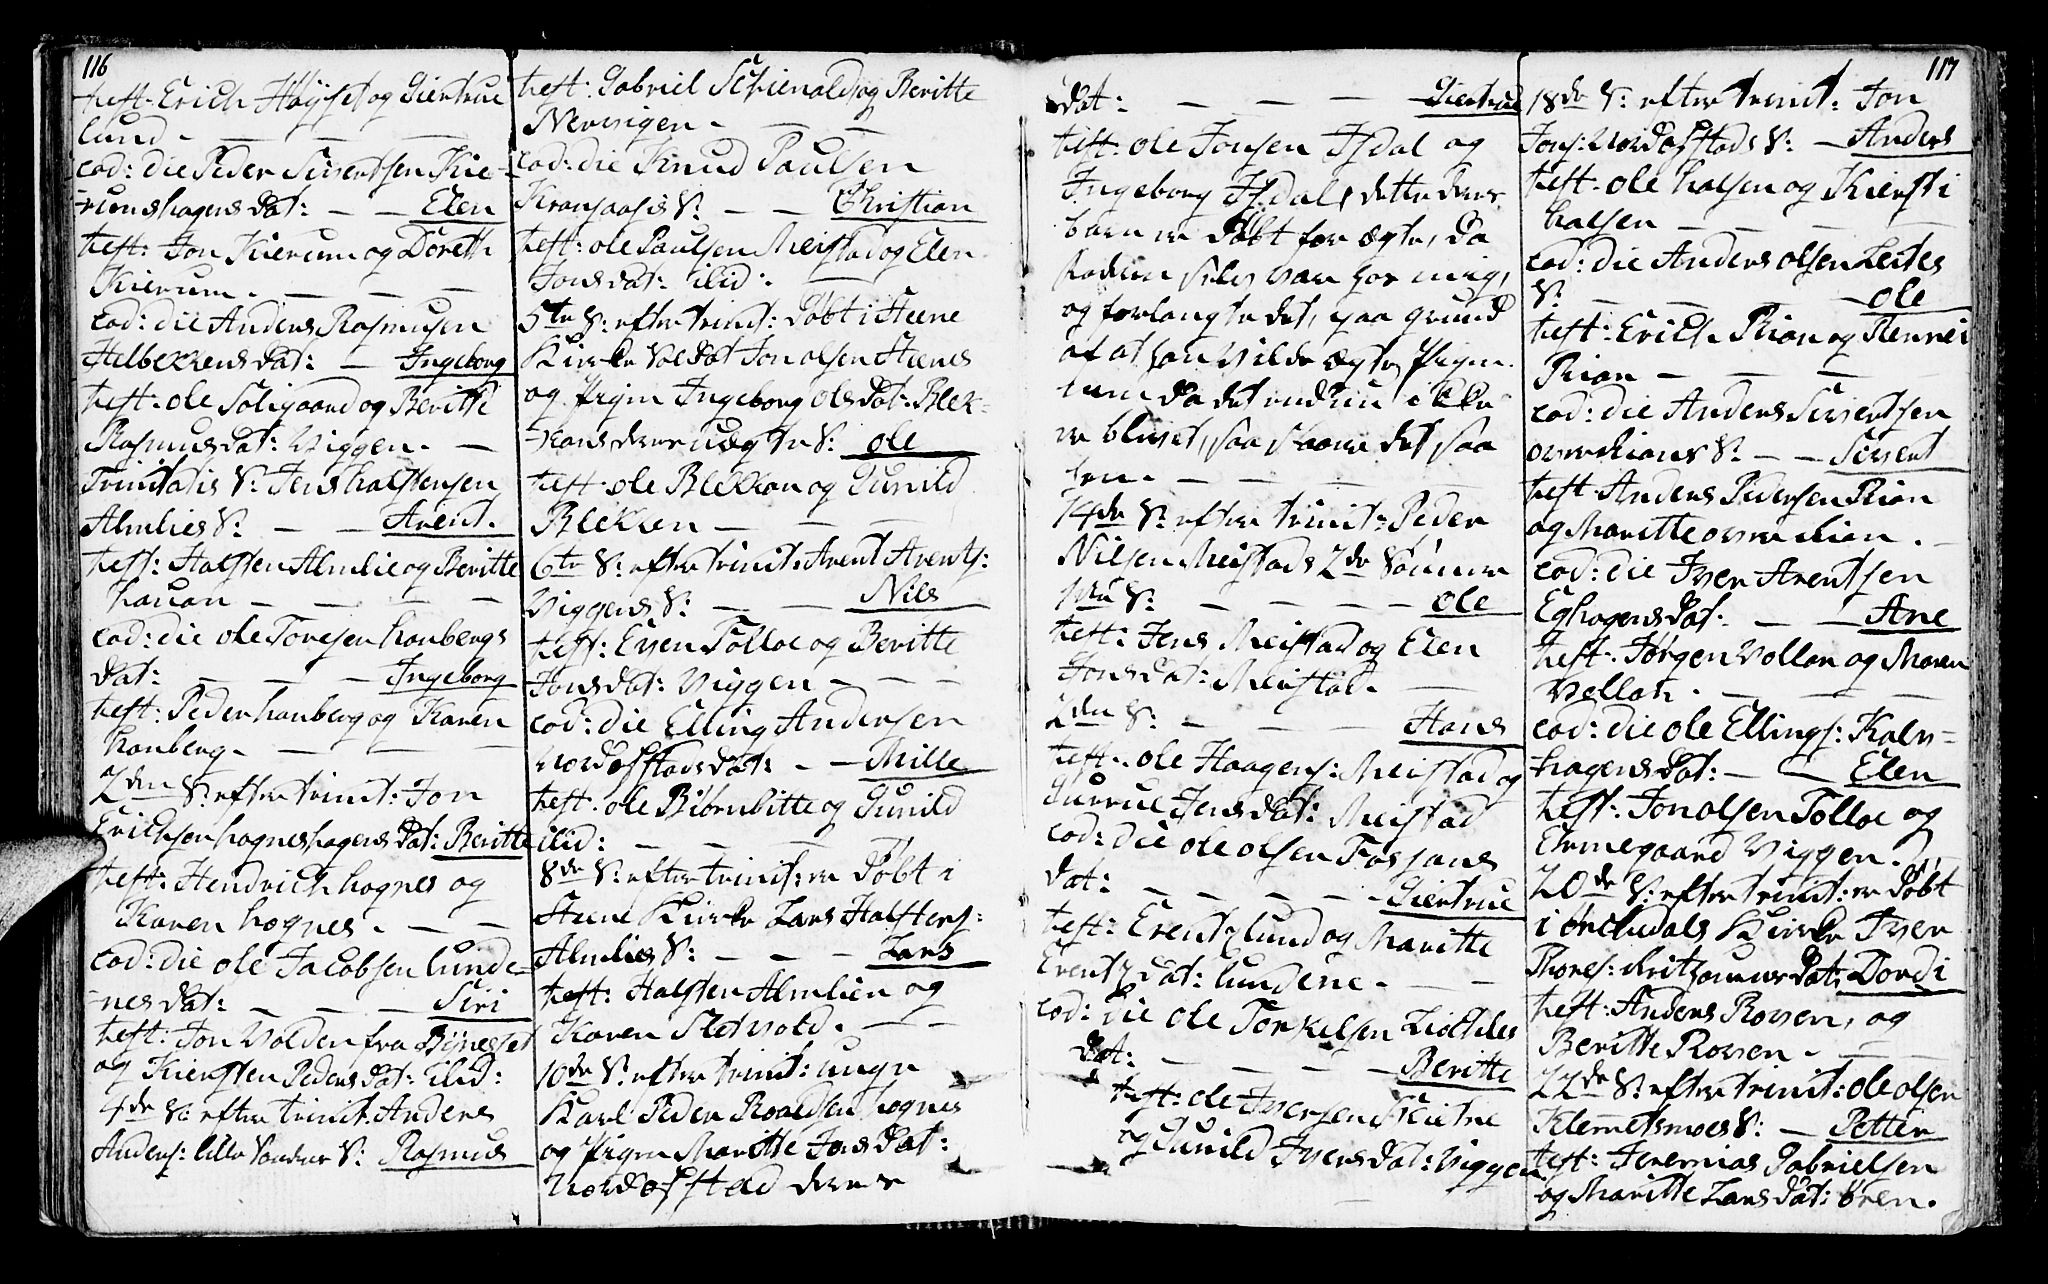 116
test: Erich Høyset og Giertrue
lund.
eod: die Peder Sivertsen Kie-
rumshagens dat: Elen
test: Jon Kierum og Doreth
Kierum.
eod: die Anders Rasmusen
Helbekkens dat: Ingeborg
test: ole Soligaard og Beritte
Rasmusdat: Viggen.
Trinitatis S: Jens halstensen
Almlies S: Arent.
test: Halsten Almlie og Beritte
hauan
eod: die ole Toresen hanbergs
dat: Ingeborg
test: Peder hanberg og Karen
hanberg.
2den S: efter trinit: Jon
Erichsen hognes hagens dat: Beritte
test: Hendrich hognes og
Karen hognes.
eod: die ole Jacobsen lunde-
nes dat: Siri
test: Jon Volden fra Bynesset
og Kiersten Peders dat: ilid:
4de S: efter trinit: Anders
Anders: S: Rasmus
test: Gabriel og Beritte
eod: die Knud Paulsen
S: Christian
test: ole Paulsen Meistad og Elen
Jonsdat: ilid:
5te S: efter trinit: døbt i
Kirke Jon olsen
og Pigen Ingeborg olsdat: Blek-
kans deres uægte S: ole
test: ole Blekkan og Gunild
Blekken
6te S: efter trinit: Arent Arents:
Viggens S: Nils
test: Even Tolloe og Beritte
Jonsdat: Viggen
eod: die Elling Andersen
Nordofstads dat: Mille
test: ole Biørnbitte og Gunild
ilid:
8de S: efter trinit: er døbt i
Kirke Lars Halstens:
Almlies S: Lars
test: Halsten Almlien og
Karen Sletvold.
10de S: efter trinit: unge
Karl Peder Roaldsen hognes
og Pigen Maritte Jonsdat:
Nordofstad deres
117
dat: Giertrue
test: ole Jonsen Isdal og
Ingeborg Isdal, dette deres
barn er døbt for ægte, da
faderen selv var hos mig,
og forlangte det, paa grund
af at han vilde ægte Pigen.
da det endnu ikke
er blevet, saa staaer det, saa
14de S: efter trinit: Peder
Nilsen Meistads 2de
1ste S: ole
test: Jens Meistad og Elen
Jonsdat: Meistad.
2den S: Hans
test: ole Haagens: Meistad og
Gurrue Jensdat: Meistad
eod: die ole olsen Fossans
dat: Giertrue
test: Erent lund og Maritte
Erents dat: lundene.
eod: die ole Torkelsen
dat: Beritte
test: ole Iversen
og Gunild Ivers dat: Viggen
18de S: efter trinit: Jon
Jons: Nordofstads S: Anders
test: ole halsen og Kiersti
halsen
eod: die Anders olsen
S: ole
test: Erich Rian og
Rian
eod: die Anders Sivertsen
S: Sivert
test: Anders Pedersen Rian
og Maritte
eod: die Iver Arentsen
Eghagens dat. Ane
test: Jørgen Vollan og Maren
Vollan.
eod: die ole Ellings: Kalv-
hagens dat: Elen
test: Jon olsen Tolloe og
Ermegaard Viggen.
20de S: efter trinit: er døbt
i Orchedals Kirke Iver
Thores: dat: Dordi
test: Anders Roven, og
Beritte Roven.
22de S: efter trinit: ole olsen
Klemetsmoes S: Petter
test: Jeremias Gabrielsen
og Maritte Larsdat: Øren.